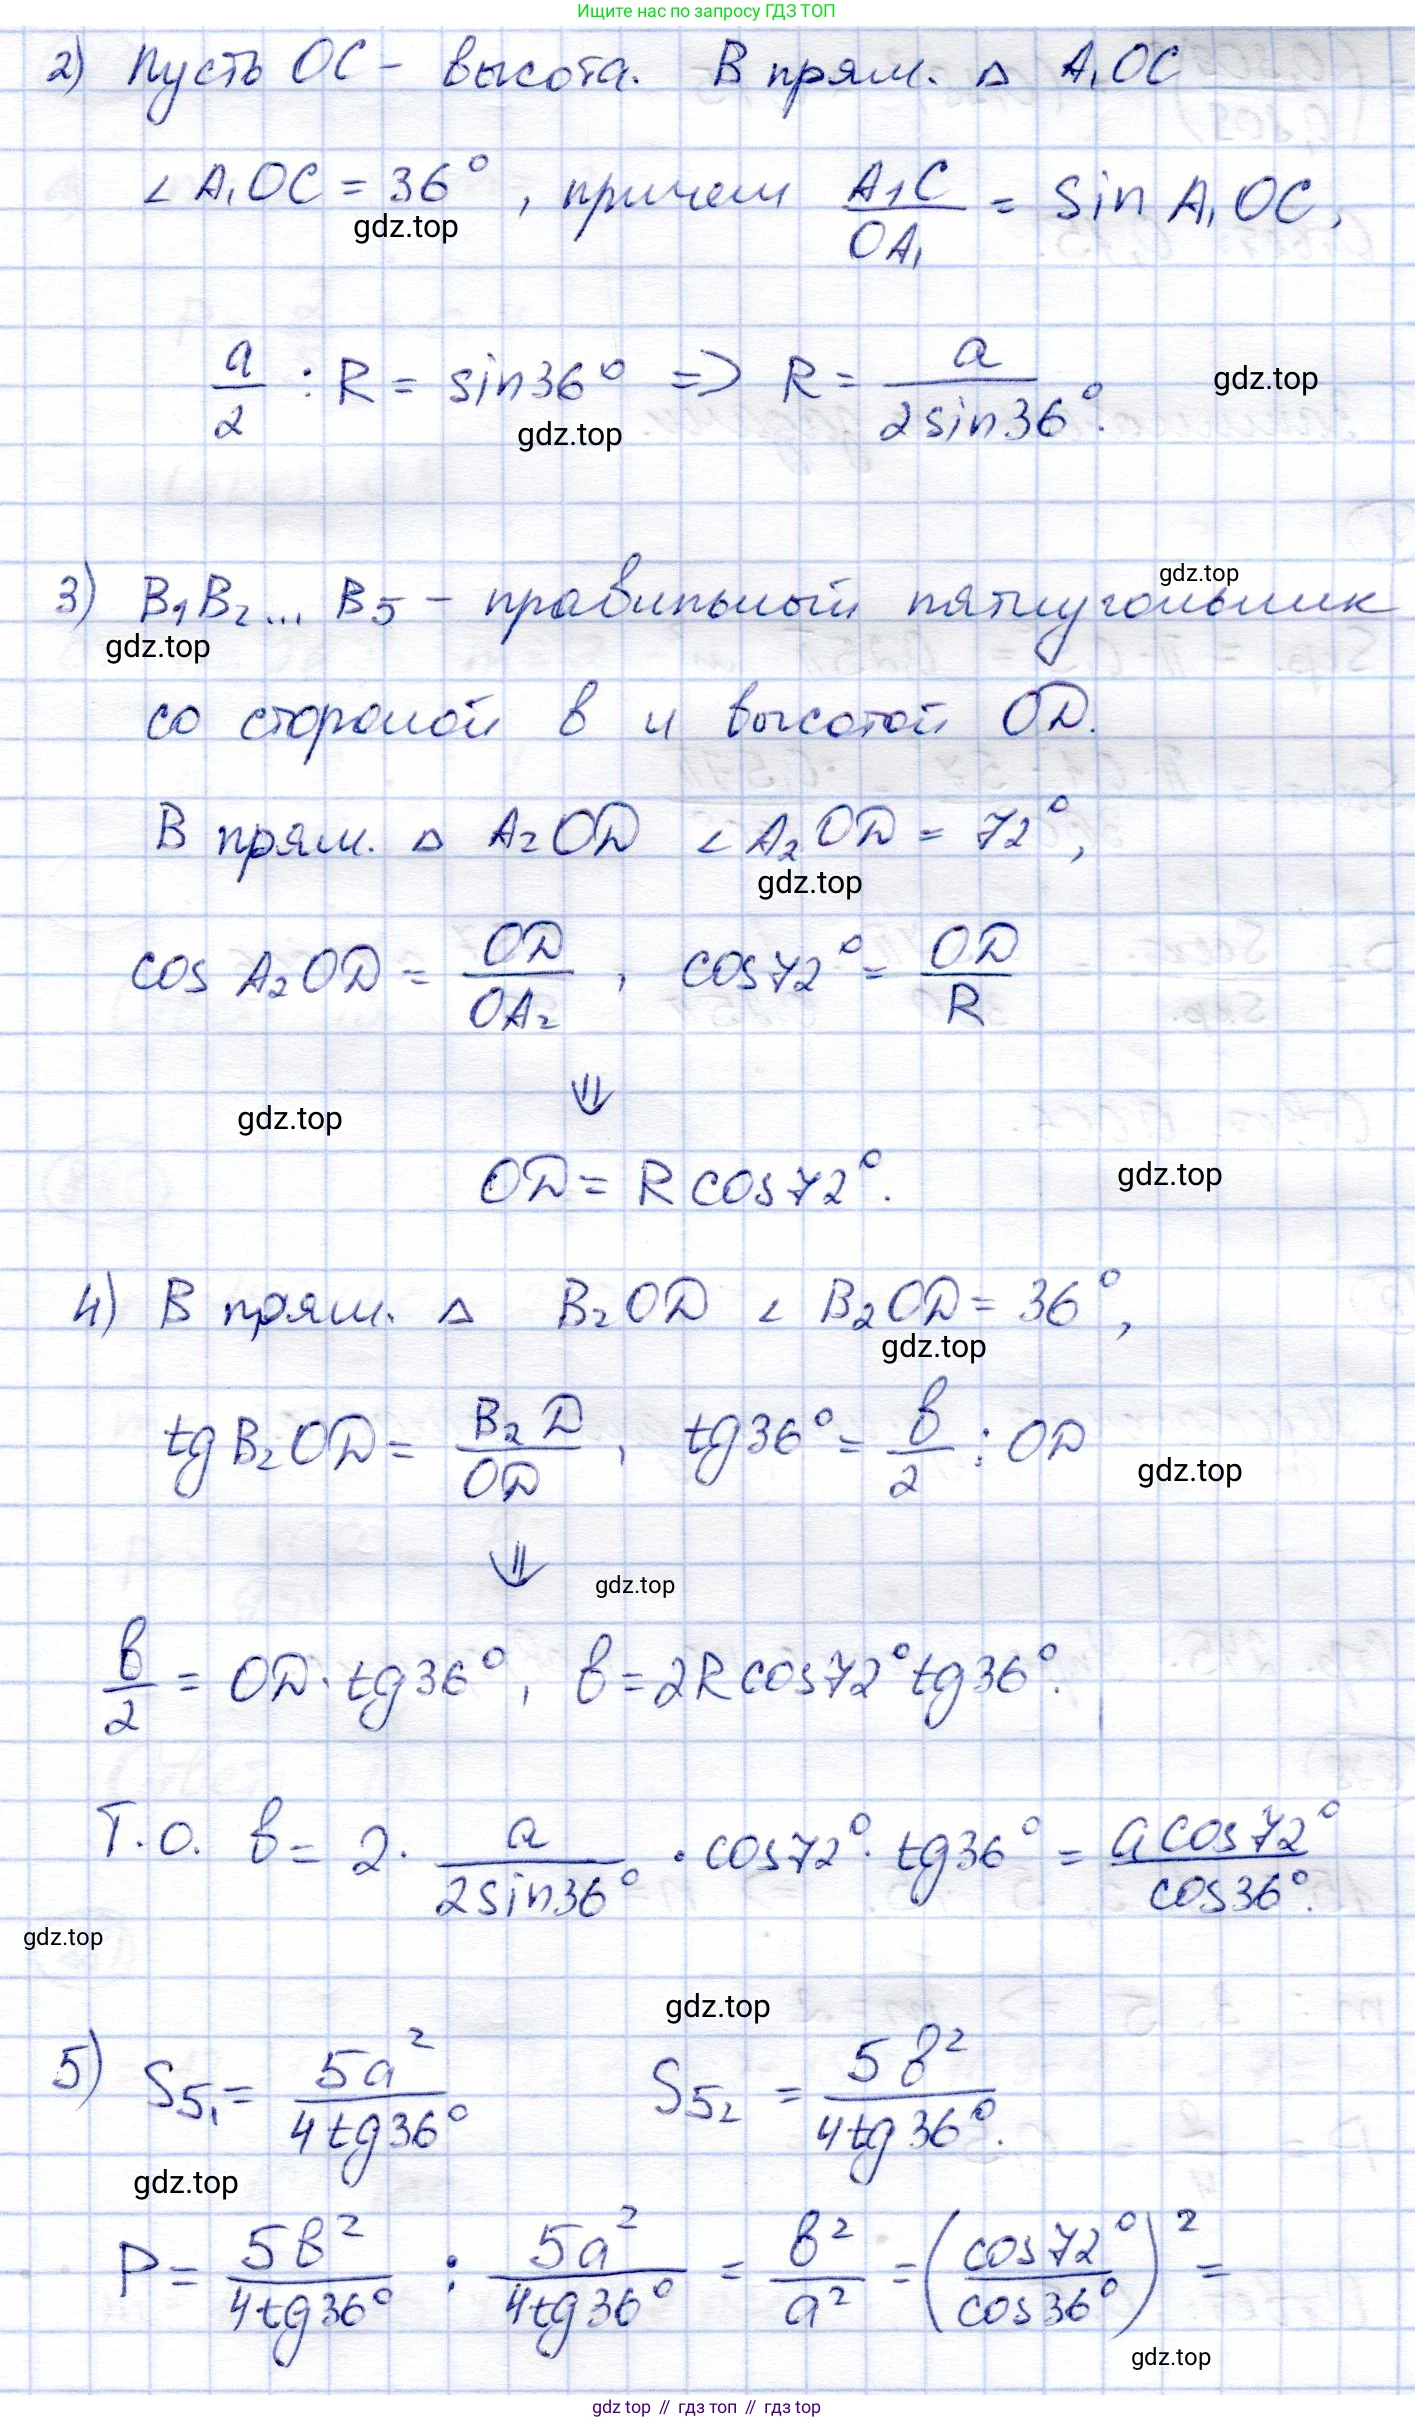 Ищите нас по запросу ГДЗ ТОП
2) Пусть OC - высота. В прям. △ A₁OC
∠A₁OC = 36°, причем A₁C/OA₁ = sin A₁OC,
gdz.top
a/2 : R = sin36° => R = a/(2sin36°).
gdz.top
gdz.top
3) B₁B₂... B₅ - правильный пятиугольник
gdz.top
gdz.top
со стороной b и высотой OD.
В прям. △ A₂OD ∠A₂OD = 72°,
gdz.top
cos A₂OD = OD/OA₂, cos72° = OD/R
⇓
gdz.top
OD = R cos72°.
gdz.top
4) В прям. △ B₂OD ∠B₂OD = 36°,
gdz.top
tg B₂OD = B₂D/OD, tg36° = b/2 : OD
gdz.top
⇓
gdz.top
b/2 = OD · tg36°, b = 2R cos72° tg36°.
Т.О. b = 2 · a/(2sin36°) · cos72° · tg36° = a cos72°/cos36°.
gdz.top
gdz.top
5) S₅₁ = 5a²/(4tg36°) S₅₂ = 5b²/(4tg36°).
gdz.top
P = 5b²/(4tg36°) : 5a²/(4tg36°) = b²/a² = (cos72°/cos36°)² =
gdz.top
gdz top // гдз топ // gdz top